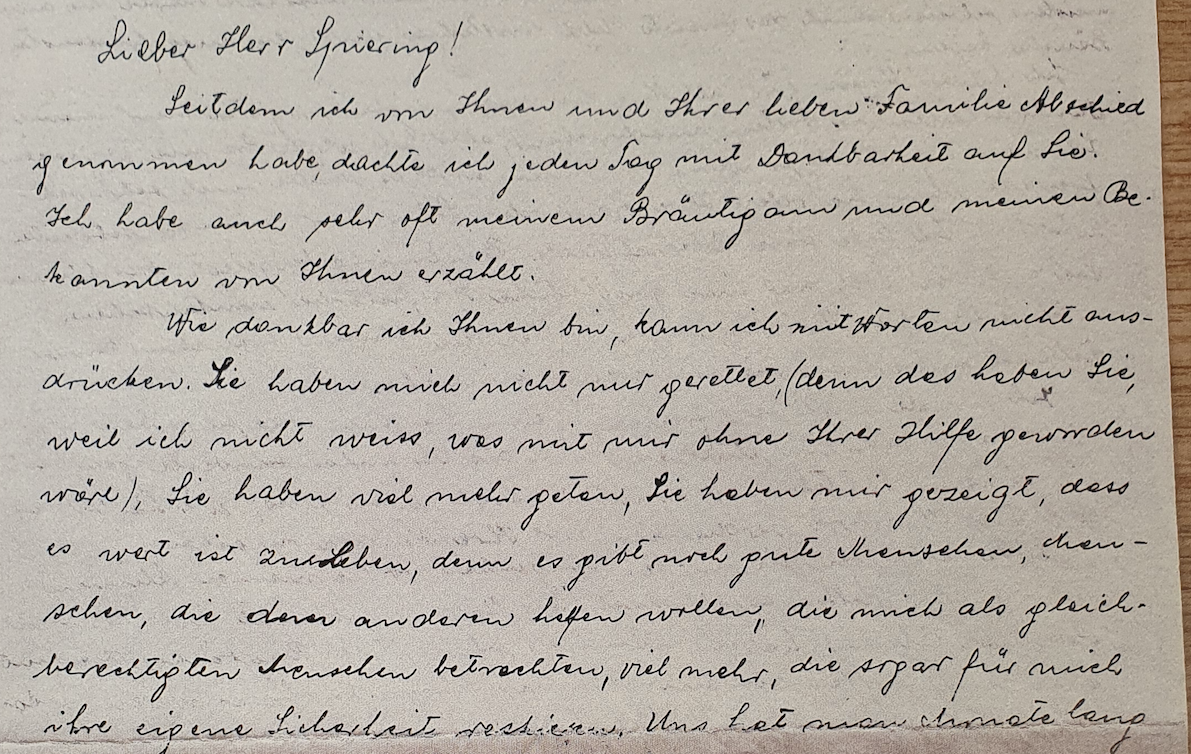 Lieber Herr Spiering!
Seitdem ich von Ihnen und Ihrer lieben Familie Abschied
genommen habe, dachte ich jeden Tag mit Dankbarkeit auf Sie.
Ich habe auch sehr oft meinem Bräutigam und meinen Be-
kannten von Ihnen erzählt.
Wie dankbar ich Ihnen bin, kann ich mit Worten nicht aus-
drücken. Sie haben mich nicht nur gerettet, (denn das haben Sie,
weil ich nicht weiss, was mit mir ohne Ihrer Hilfe geworden
wäre), Sie haben viel mehr getan, Sie haben mir gezeigt, dass
es wert ist zu Leben, denn es gibt noch gute Menschen, Men-
schen, die den anderen helfen wollen, die mich als gleich-
berechtigten Menschen betrachten, viel mehr, die sogar für mich
ihre eigene Sicherheit Uns hat man Monate lang